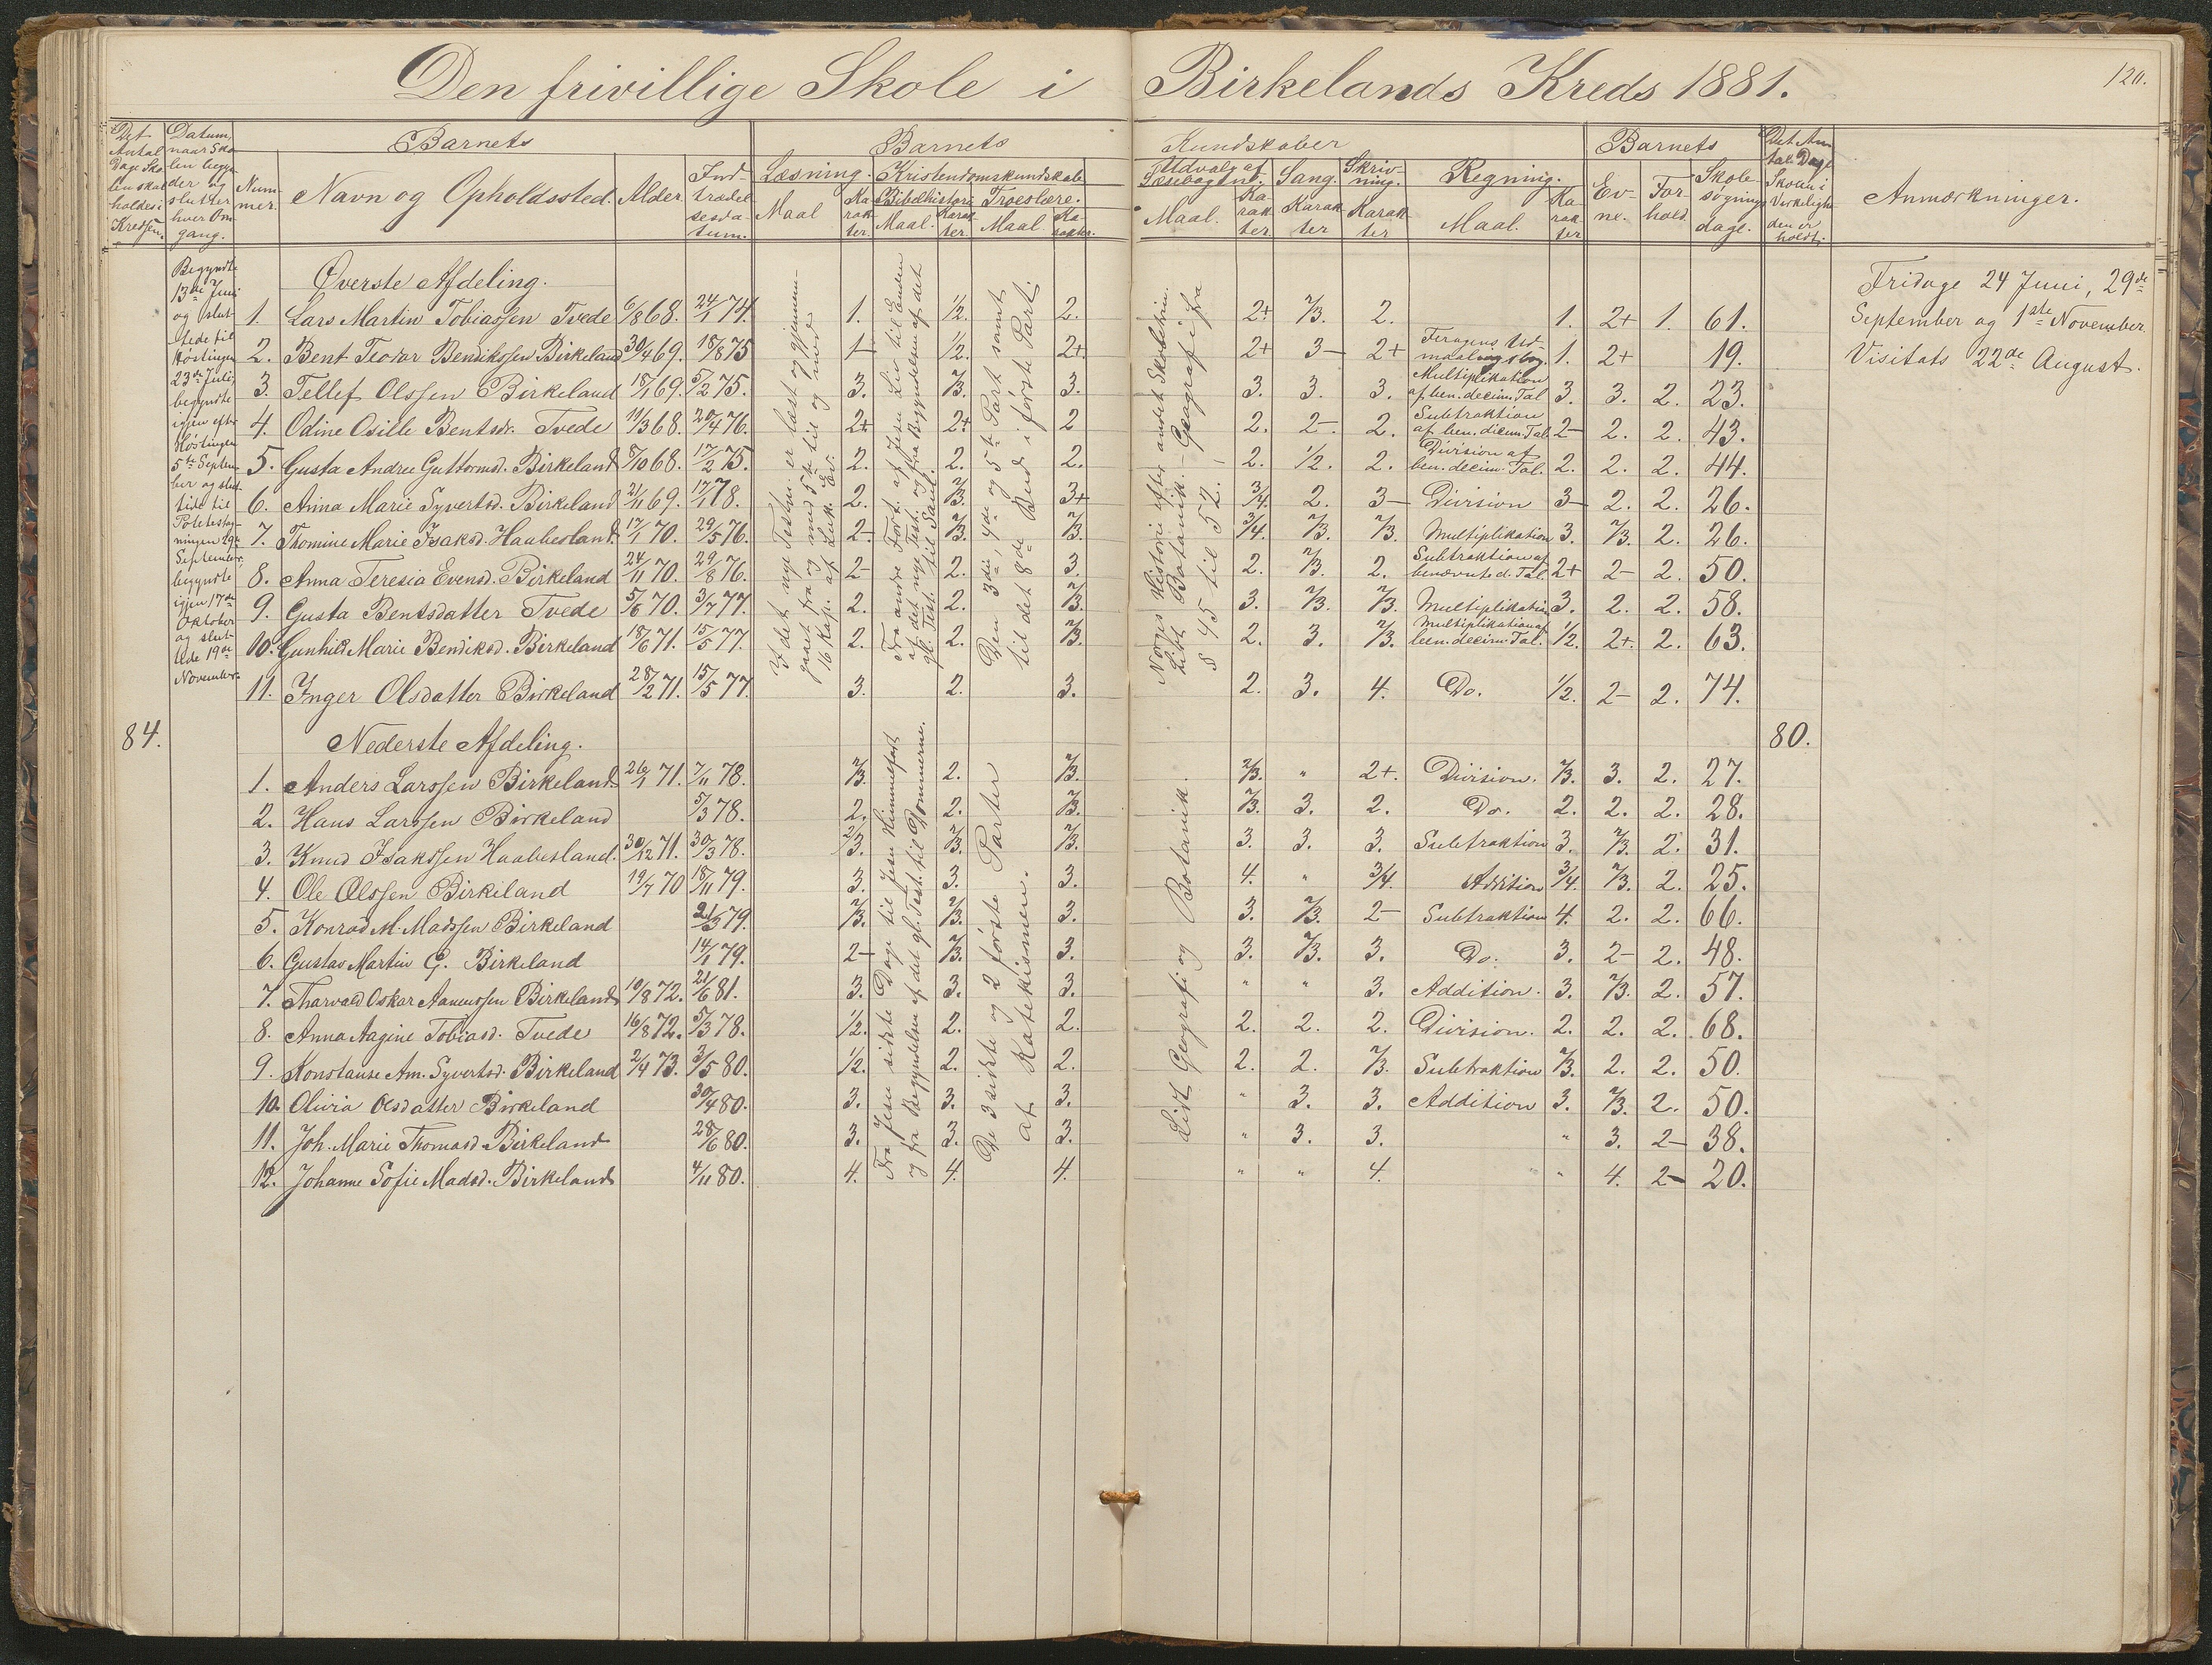 Den frivillige Skole i Birkelands Kreds 1881.
120.
Det Antal Dage Skolen skal holdes i Kredsen.
Datum, naar Skolen begynder og slutter hver Omgang.
Barnets
Nummer.
Navn og Opholdssted.
Alder.
Indtrædelsesdatum.
Barnets Kundskaber
Læsning.
Maal
Karakter.
Kristendomskundskab
Bibelhistorie
Maal.
Karakter.
Troeslære.
Maal.
Karakter.
Udvalg af Læsebogen.
Maal.
Karakter.
Sang.
Karakter
Skrivning.
Karakter
Regning.
Maal.
Karakter
Barnets
Evne.
Forhold
Skolesøgningsdage.
Det Antal Dage Skolen i Virkeligheden er holdt.
Anmærkninger.
Begyndte
13de Juni
og slut-
tede til
Høstingen
23de Juli,
begyndte
igjen efter
Høstingen
5te Septem-
ber og slut-
tede til
Potetestag-
ningen 29de
September,
begyndte
igjen 17de
Oktober
og slut-
tede 19de
November.
Øverste Afdeling.
I det nye Testm. er læst og gjennem-
gaaet fra og med 5te til og med
16 Kap. af Luk. Ev.
Fra andre Fort. af Jesu Liv til Enden
af det nye Test. og fra Begyndelsen af det
gl. Test. til Saul.
Den 3die, 4de og 5te Part samt
til det 8de Bud i første Part.
Norges Historie efter andet Skoletrin.
Lidt Botanik – Geografi fra
§ 45 til 52.
1. Lars Martin Tobiassen Tvede 6/8 68. 24/1 74. 1. 1/2. 2. 2+ 2/3. 2. 1. 2+ 1. 61.
2. Bent Teodor Bendikssen Birkeland 30/4 69. 18/8 75 1- 1/2. 2+. 2+ 3- 2+ 1. 2+ 19.
3. Tellef Olssen Birkeland 18/1 69. 5/2 75. 3. 2/3. 3. 3. 3. 3. Multiplikation af ben. decim. Tal 3. 3. 2. 23.
4. Odine Osille Bentsdr. Tvede 19/3 68. 20/4 76. 2+ 2+ 2 2. 2-. 2. Subtraktion af ben. decim. Tal. 2- 2. 2. 43.
5. Gusta Andrea Guttormsd. Birkeland 8/10 68. 17/2 75. 2. 2. 2. 2. 1/2. 2. Division af ben. decim. Tal. 2. 2. 2. 44.
6. Anna Marie Syvertsd. Birkeland 21/11 69. 17/1 78. 2. 2/3. 3+ 3/4. 2. 3- Division 3- 2. 2. 26.
7. Thomine Marie Isaksd. Haabesland. 17/1 70. 29/5 76. 2- 2/3. 2/3. 3/4. 2/3. 2/3. Multiplikation 3. 2/3. 2. 26.
8. Anna Teresia Evensd. Birkeland 24/11 70. 29/8 76. 2- 2. 3. 2. 2/3. 2. Subtraktion af benævnte d. Tal. 2+ 2- 2. 50.
9. Gusta Bentsdatter Tvede 5/6 70. 3/7 77. 2. 2. 2/3. 3. 2/3. 2/3. Multiplikation 3. 2. 2. 58.
10. Gunhild Marie Bendiksd. Birkeland 18/6 71. 15/5 77. 2. 2. 2/3. 2. 3. 2/3. Multiplikation af ben. decim. Tal. 1/2. 2+. 2. 63.
11. Inger Olsdatter Birkeland 28/2 71. 15/5 77. 3. 2. 3. 2. 3. 4. Do. 1/2. 2- 2. 74.
84.
80.
Fridage 24 Juni, 29de
September og 1ste November.
Visitats 22de August.
Nederste Afdeling.
Fra Jesu sidste Dage til Jesu Himmelfart
og fra Begyndelsen af det gl. Test. til Dommerne.
De 3 sidste og 2 første Parter
af Katekismen.
Lidt Geografi og Botanik.
1. Anders Larssen Birkeland 26/1 71. 7/11 78. 2/3. 2. 2/3. 2/3. " 2+. Division. 2/3. 3. 2. 27.
2. Hans Larssen Birkeland 5/3 78. 2. 2. 2/3. 2/3. 3. 2. Do. 2. 2. 2. 28.
3. Knud Isakssen Haabesland. 30/12 71. 30/3 78. 2/3. 2/3. 2/3. 3. 3. 3. Subtraktion 3. 2/3. 2. 31.
4. Ole Olssen Birkeland 19/7 70 18/11 79. 3. 3. 3. 4. " 3/4. Addition 3/4. 2/3. 2. 25.
5. Konrad M. Madssen Birkeland 21/3 79. 2/3. 2/3. 3. 3. 2/3. 2- Subtraktion 4. 2. 2. 66.
6. Gustav Martin G. Birkeland 14/1 79. 2- 2/3. 3. 3. 2/3. 3. Do. 3. 2- 2. 48.
7. Tharvald Oskar Aanenssen Birkeland 10/8 72. 21/6 81. 3. 3. 3. " " 3. Addition. 3. 2/3. 2. 57.
8. Anna Aagine Tobiasd. Tvede 16/8 72. 5/3 78. 1/2. 2. 2. 2. 2. 2. Division. 2. 2. 2. 68.
9. Konstanse Am. Syvertsd. Birkeland 2/4 73. 3/5 80. 1/2. 2. 2. 2. 2. 2/3. Subtraktion 2/3. 2. 2. 50.
10. Olivia Olsdatter Birkeland 30/4 80. 3. 3. 3. " 3. 3. Addition 3. 2/3. 2. 50.
11. Joh. Marie Thomasd. Birkeland 28/6 80. 3. 3. 3. " 3. 3. " 3. 2- 38.
12. Johanne Sofie Madsd. Birkeland 4/11 80. 4. 4. 4. " " 4. " 4. 2- 20.